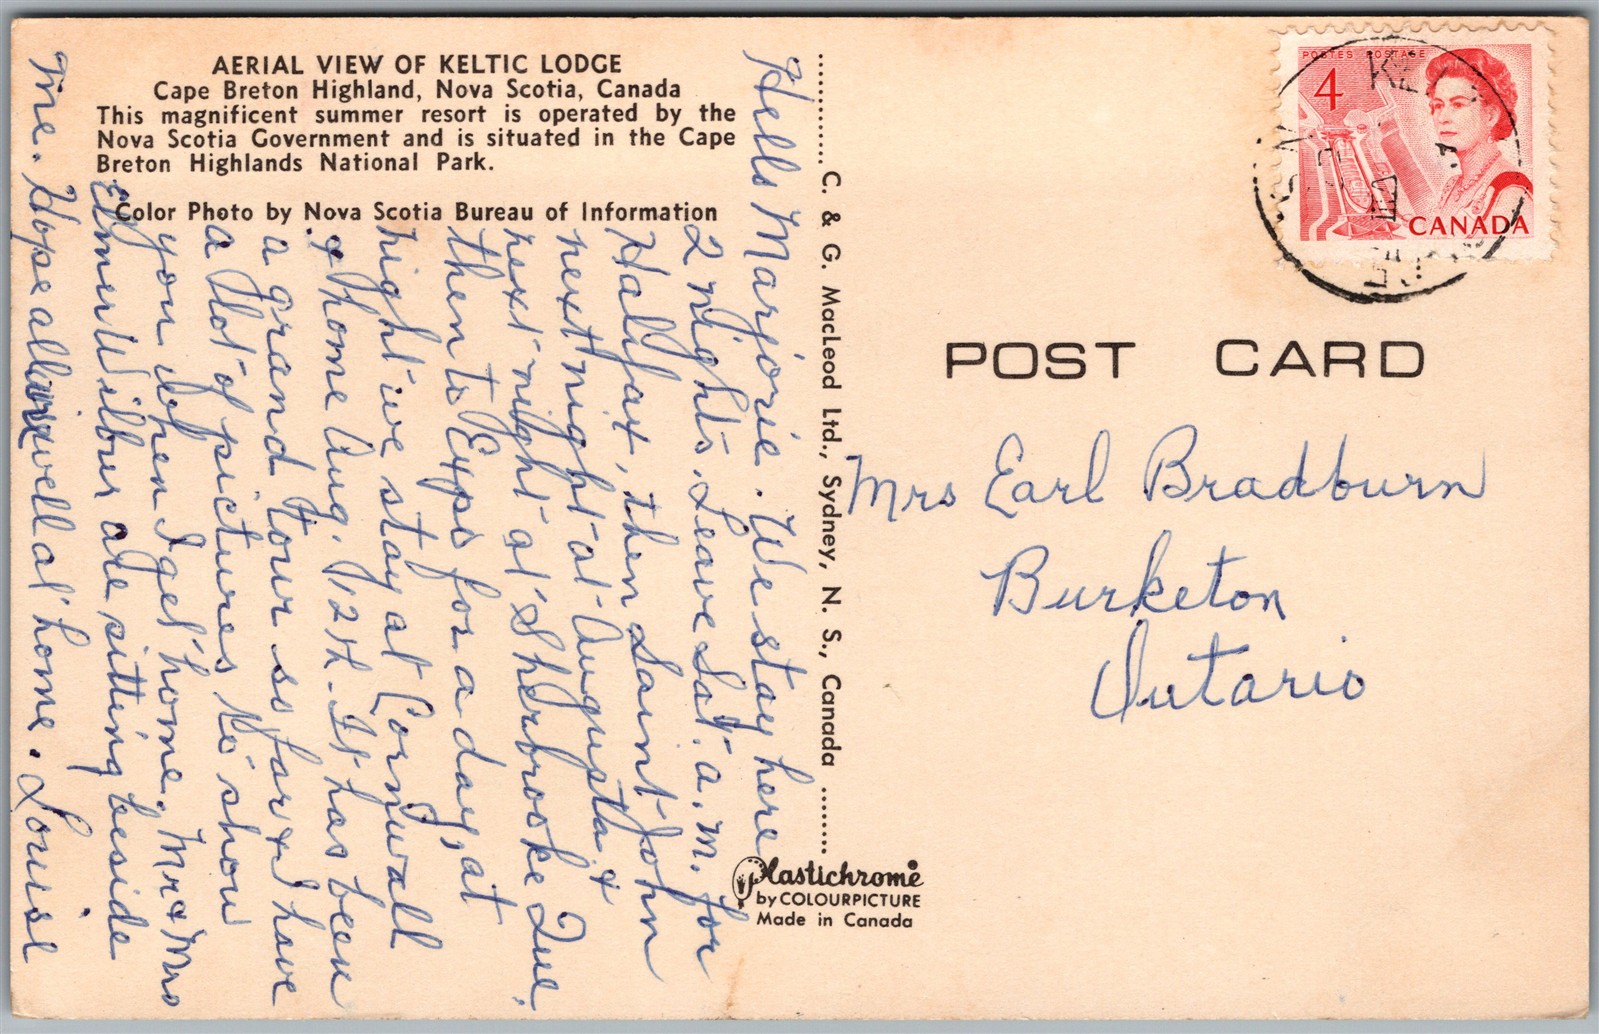 AERIAL VIEW OF KELTIC LODGE
Cape Breton Highland, Nova Scotia, Canada
This magnificent summer resort is operated by the
Nova Scotia Government and is situated in the Cape
Breton Highlands National Park.
Color Photo by Nova Scotia Bureau of Information
Hello Marjorie. We stay here
2 nights. Leave Sat. a.m. for
Halifax, then Saint John
next night at Augusta &
next night at Sherbrooke Que.
then to Expo for a day, at
night we stay at Cornwall
& home Aug. 12th. It has been
a grand tour so far & I have
a lot of pictures to show
you when I get home. Mr & Mrs
Elmer Wilbur are sitting beside
me. Hope all is well at home. Louise
C. & G. MacLeod Ltd., Sydney, N. S., Canada
Plastichrome
by COLOURPICTURE
Made in Canada
POSTES POSTAGE
4
CANADA
POST CARD
Mrs Earl Bradburn
Burketon
Ontario